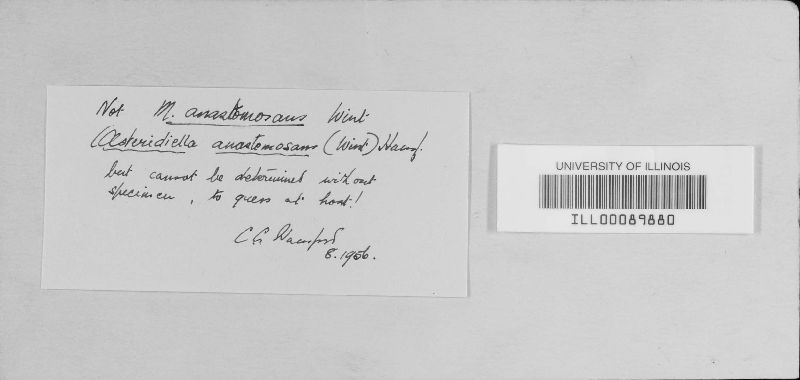 Not M. anastomosans Wint
(Asteridiella anastomosans (Wint) Hansf.
but cannot be determined without
specimen, to guess at host!
C G Hansford
8.1956.
UNIVERSITY OF ILLINOIS
ILL00089880